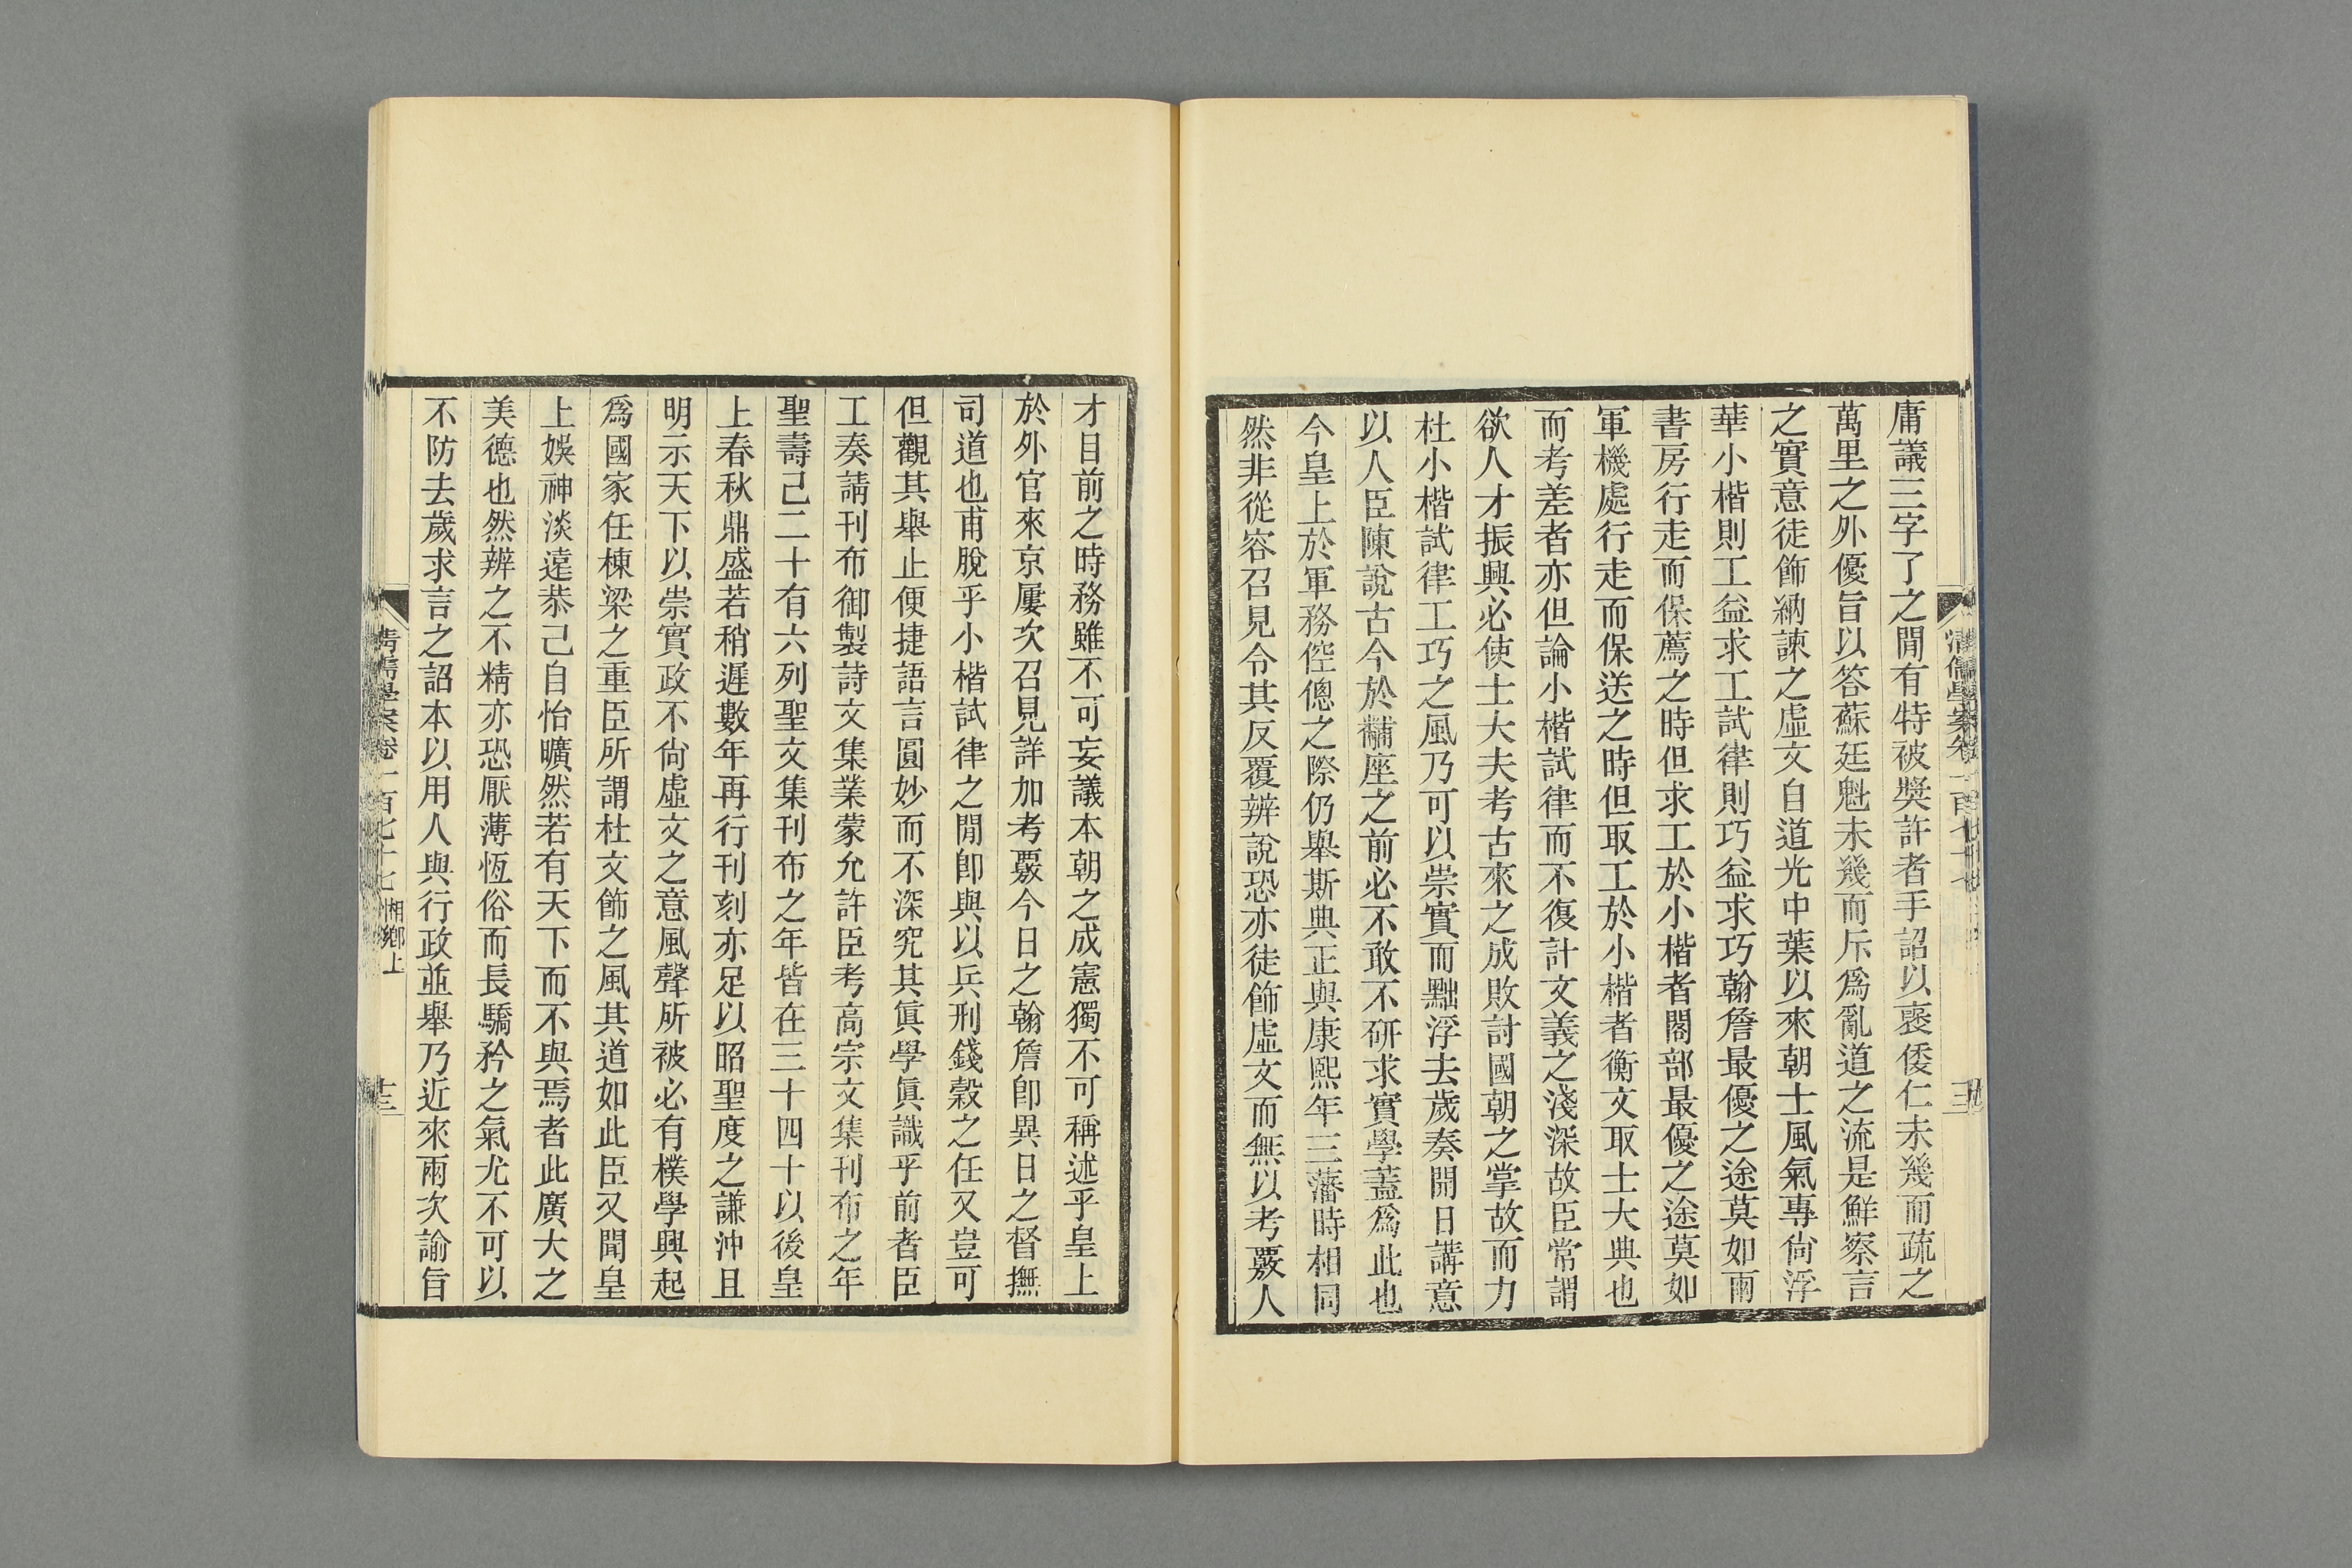 庸議三字了之閒有特被獎許者手詔以褒倭仁未幾而疏之
萬里之外優旨以答蘇廷魁未幾而斥爲亂道之流是鮮察言
之實意徒飾納諫之虛文自道光中葉以來朝士風氣專尙浮
華小楷則工益求工試律則巧益求巧翰詹最優之途莫如兩
書房行走而保薦之時但求工於小楷者閣部最優之途莫如
軍機處行走而保送之時但取工於小楷者衡文取士大典也
而考差者亦但論小楷試律而不復計文義之淺深故臣常謂
欲人才振興必使士大夫考古來之成敗討國朝之掌故而力
杜小楷試律工巧之風乃可以崇實而黜浮去歲奏開日講意
以人臣陳說古今於黼座之前必不敢不硏求實學蓋爲此也
今皇上於軍務倥傯之際仍舉斯典正與康熙年三藩時相同
然非從容召見令其反覆辨說恐亦徒飾虛文而無以考覈人
才目前之時務雖不可妄議本朝之成憲獨不可稱述乎皇上
於外官來京屢次召見詳加考覈今日之翰詹卽異日之督撫
司道也甫脫乎小楷試律之閒卽與以兵刑錢穀之任又豈可
但觀其舉止便捷語言圓妙而不深究其眞學眞識乎前者臣
工奏請刊布御製詩文集業蒙允許臣考高宗文集刊布之年
聖壽己二十有六列聖文集刊布之年皆在三十四十以後皇
上春秋鼎盛若稍遲數年再行刊刻亦足以昭聖度之謙沖且
明示天下以崇實政不尙虛文之意風聲所被必有樸學興起
爲國家任棟梁之重臣所謂杜文飾之風其道如此臣又聞皇
上娛神淡遠恭己自怡曠然若有天下而不與焉者此廣大之
美德也然辨之不精亦恐厭薄恆俗而長驕矜之氣尤不可以
不防去歲求言之詔本以用人與行政並舉乃近來兩次諭旨
清儒學案卷一百七十七 湘鄉上
十三